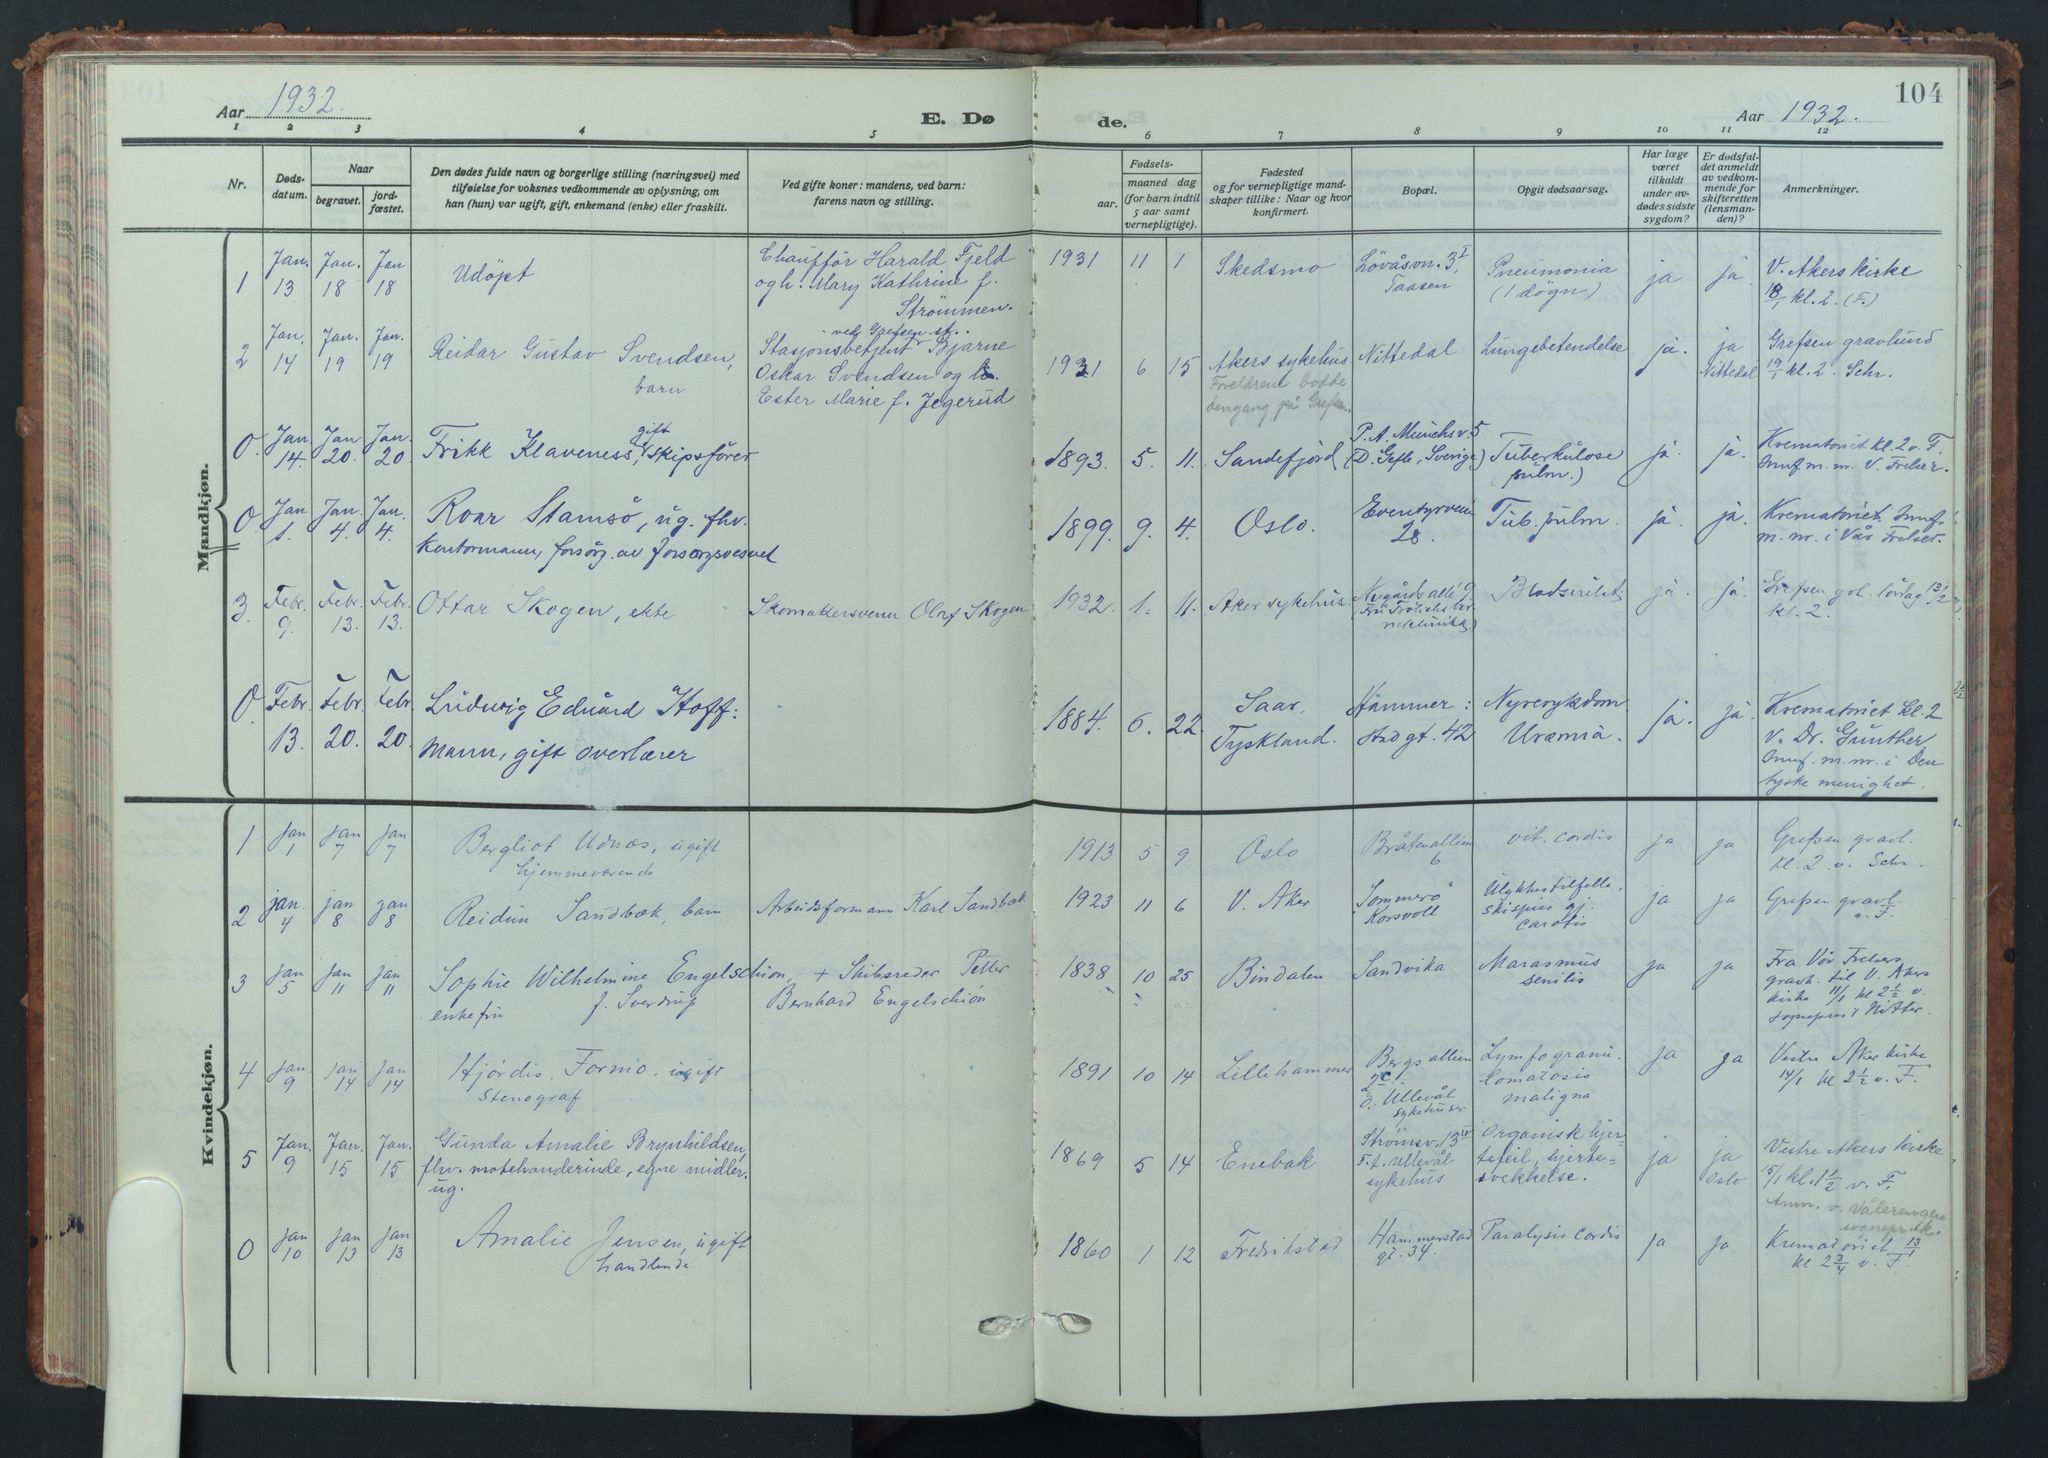 Aar 1932.
E. Dø
de.
Aar 1932.
104
1 2 3 4 5 6 7 8 9 10 11 12
Nr.
Døds-
datum.
Naar
begravet.
jord-
fæstet.
Den dødes fulde navn og borgerlige stilling (næringsvei) med
tilføielse for voksnes vedkommende av oplysning, om
han (hun) var ugift, gift, enkemand (enke) eller fraskilt.
Ved gifte koner: mandens, ved barn:
farens navn og stilling.
Fødsels-
aar.
maaned dag
(for barn indtil
5 aar samt
vernepligtige).
Fødested
og for vernepligtige mand-
skaper tillike: Naar og hvor
konfirmert.
Bopæl.
Opgit dødsaarsag.
Har læge
været
tilkaldt
under av-
dødes sidste
sygdom?
Er dødsfal-
det anmeldt
av vedkom-
mende for
skifteretten
(lensman-
den)?
Anmerkninger.
Mandkjøn.
1
Jan. 13
Jan. 18
Jan 18
Udøpt
Chaufför Harald Fjeld
og h. Mary Kathrine f.
Strömmen.
1931 11 1
Skedsmo
Lövåsvn. 3 I,
Taasen
Pneumonia
(1 døgn)
ja
ja
V. Akers kirke
18/1 kl. 2. (F.)
2
Jan. 14
Jan. 19
Jan. 19
Reidar Gustav Svendsen,
barn
ved Grefsen st.
Stasjonsbetjent Bjarne
Oskar Svendsen og h.
Ester Marie f. Jegerud
1931 6 15
Akers sykehus
Foreldrene bodde
dengang på Grefsen.
Nittedal
Lungebetendelse
ja.
ja
Nittedal
Grefsen gravlund
19/1 kl. 2. Schr.
0.
Jan. 14.
Jan 20.
Jan. 20.
Frikk Klaveness, gift skipsfører
1893. 5. 11.
Sandefjord
P. A. Munchs v. 5
(D. Gefle, Sverige)
Tuberkulose
(pulm.)
ja.
ja.
Krematoriet kl. 2 v. F.
Innf. m. nr. V. Frelser.
0.
Jan 1.
Jan. 4.
Jan. 4.
Roar Stamsö, ug. fhv.
kontormann, forsørg. av forsorgsvesenet
1899. 9. 4.
Oslo.
Eventyrveien
28.
Tub. pulm.
ja.
ja.
Krematoriet, Innf.
m. nr. i Vår Frelser.
3.
Febr. 9.
Febr. 13.
Febr. 13.
Ottar Skogen, ekte
Skomakersvenn Olaf Skogen
1932. 1. 11.
Aker sykehus.
Nygårds allé 9.
ja.
ja.
Grefsen grl. lördag 13/2
kl. 2.
0.
Febr. 13.
Febr. 20.
Febr. 20.
Ludwig Eduard Hoff:
mann, gift overlærer
1884. 6. 22
Saar,
Tyskland.
Hammer:
stad gt. 42
Nyresykdom
Uræmia.
ja.
ja.
Krematoriet kl. 2
v. Dr. Günther,
Innf. m. nr. i Den
tyske menighet.
Kvindekjøn.
1
Jan 1
Jan 7
Jan 7
Bergliot Udnæs, ugift
hjemmeværende
1913 5 9
Oslo
Bråtenalleen
6
vit. cordis
ja
ja
Grefsen gravl.
kl. 2 v. Schr.
2
jan. 4
jan 8
jan 8
Reidun Sandbæk, barn
Arbeidsformann Karl Sandbæk
1923 11 6
V. Aker
Sommerö
Korsvoll
Ulykkestilfelle,
carotis
ja
ja
Grefsen gravl.
v. F.
3
Jan 5
Jan 11
Jan 11
Sophie Wilhelmine Engelschiøn,
enkefru f. Sverdrup
+ Skibsreder Petter
Bernhard Engelschiøn
1838 10 25
Bindalen
Sandvika
Marasmus
senilis
ja
ja
Fra Vår Frelsers
gravl. til V. Akers
kirke 11/1 kl 2 1/2 v.
4
Jan 9
jan 14
Jan 14
Hjördis Formo. ugift
Stenograf
1891 10 14
Lillehammer
Bergsalleen
2c.
d. Ullevål
sykehuser
Lymfogranu-
lomatosis
maligna
ja
ja
Vestre Aker kirke
14/1 kl 2 1/2 v. F.
5
Jan. 9
Jan. 15
Jan. 15
Gunda Amalie Brynhildsen,
fhv. motehandlerinde, egne midler.
ug.
1869 5 14
Enebak
Strömsv. 13 IV
F. t. Ullevål
sykehus
Organisk hjer-
tefeil, hjerte=
svekkelse.
ja
ja
Oslo
Vestre Akers kirke
15/1 kl. 1 1/2 v. F.
Anm. v. Vålerengen
sognepr. k.
0
Jan 10
Jan 13
Jan 13
Amalie Jensen, ugift
handlende
1860 1 12
Fredrikstad
Hammerstad
gt. 34.
Paralysis cordis
ja
ja
Krematoriet 13/1
kl 2 3/4 v. F.